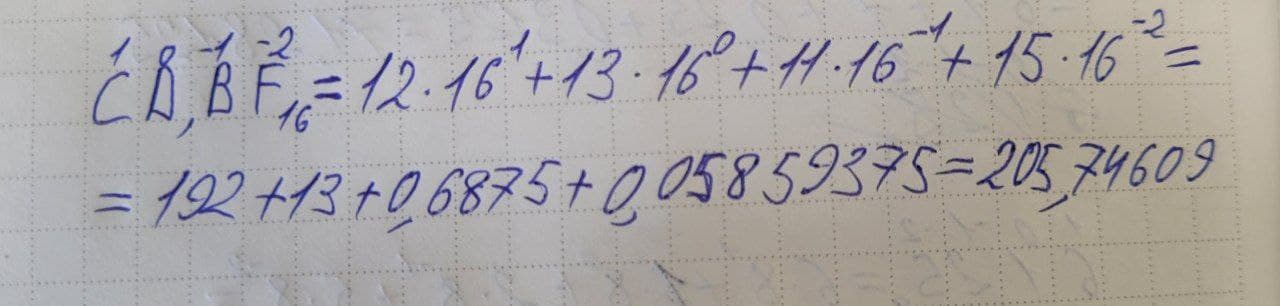 C¹D⁰,B⁻¹F⁻²₁₆ = 12 · 16¹ + 13 · 16⁰ + 11 · 16⁻¹ + 15 · 16⁻² =
= 192 + 13 + 0,6875 + 0,05859375 = 205,74609